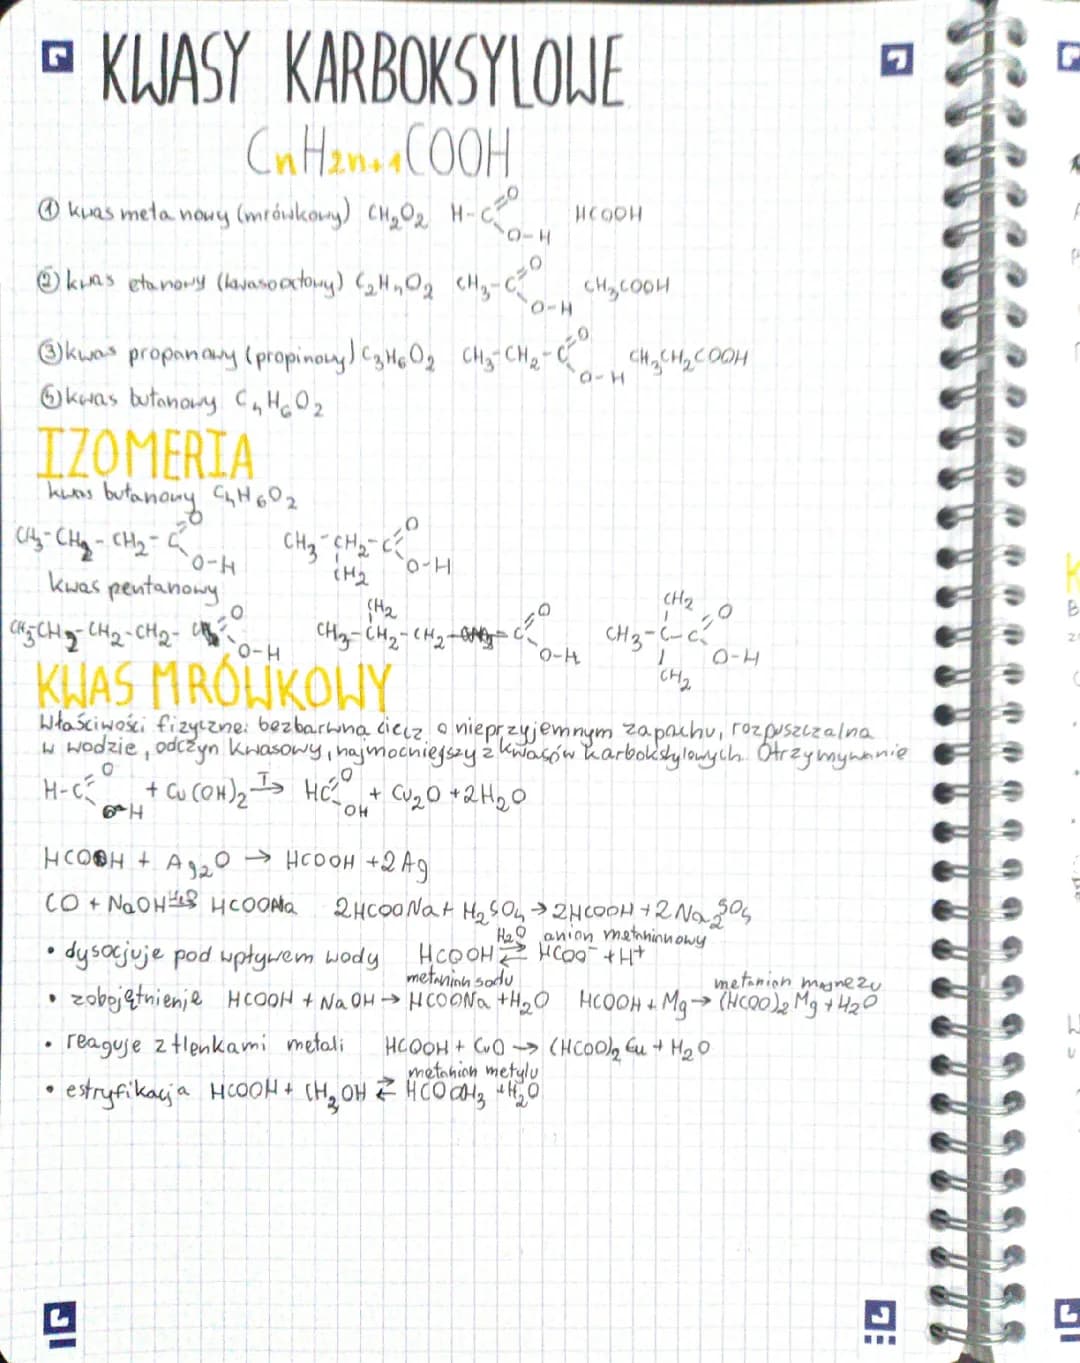 KWASY KARBOKSYLOWE
CnH2n+1COOH
① kwas metanowy (mrówkowy) CH₂O₂ H-C=O O-H HCOOH
② kwas etanowy (kwas octowy) C₂H₄O₂ CH₃-C=O O-H CH₃COOH
③ kwas propanowy (propinowy) C₃H₆O₂ CH₃-CH₂-C=O O-H CH₃CH₂COOH
⑤ kwas butanowy C₄H₆O₂
IZOMERIA
kwas butanowy C₄H₆O₂
CH₃-CH₂-CH₂-C=O O-H CH₃-CH₂-C=O O-H
CH₂
kwas pentanowy
CH₂ CH₂
CH₃-CH₂-CH₂-CH₂- C=O O-H CH₃-CH₂-CH₂-C=O O-H CH₃-C-C=O O-H
CH₂
KWAS MRÓWKOWY
Właściwości fizyczne: bezbarwna ciecz o nieprzyjemnym zapachu, rozpuszczalna
w wodzie, odczyn kwasowy, najmocniejszy z kwasów karboksylowych. Otrzymywanie
H-C=O O-H + Cu(OH)₂ T→ HC=O OH + Cu₂O + 2H₂O
HCOOH + Ag₂O → HCOOH + 2Ag
CO + NaOH → HCOONa 2HCOONa + H₂SO₄ → 2HCOOH + 2Na₂SO₄
H₂O anion metaninnowy
• dysocjuje pod wpływem wody HCOOH ⇄ HCOO⁻ + H⁺
metanian sodu metanian magnezu
• zobojętnienie HCOOH + NaOH → HCOONa + H₂O HCOOH + Mg → (HCOO)₂Mg + H₂O
• reaguje z tlenkami metali HCOOH + CuO → (HCOO)₂Cu + H₂O
metanian metylu
• estryfikacja HCOOH + CH₃OH ⇄ HCOOCH₃ + H₂O